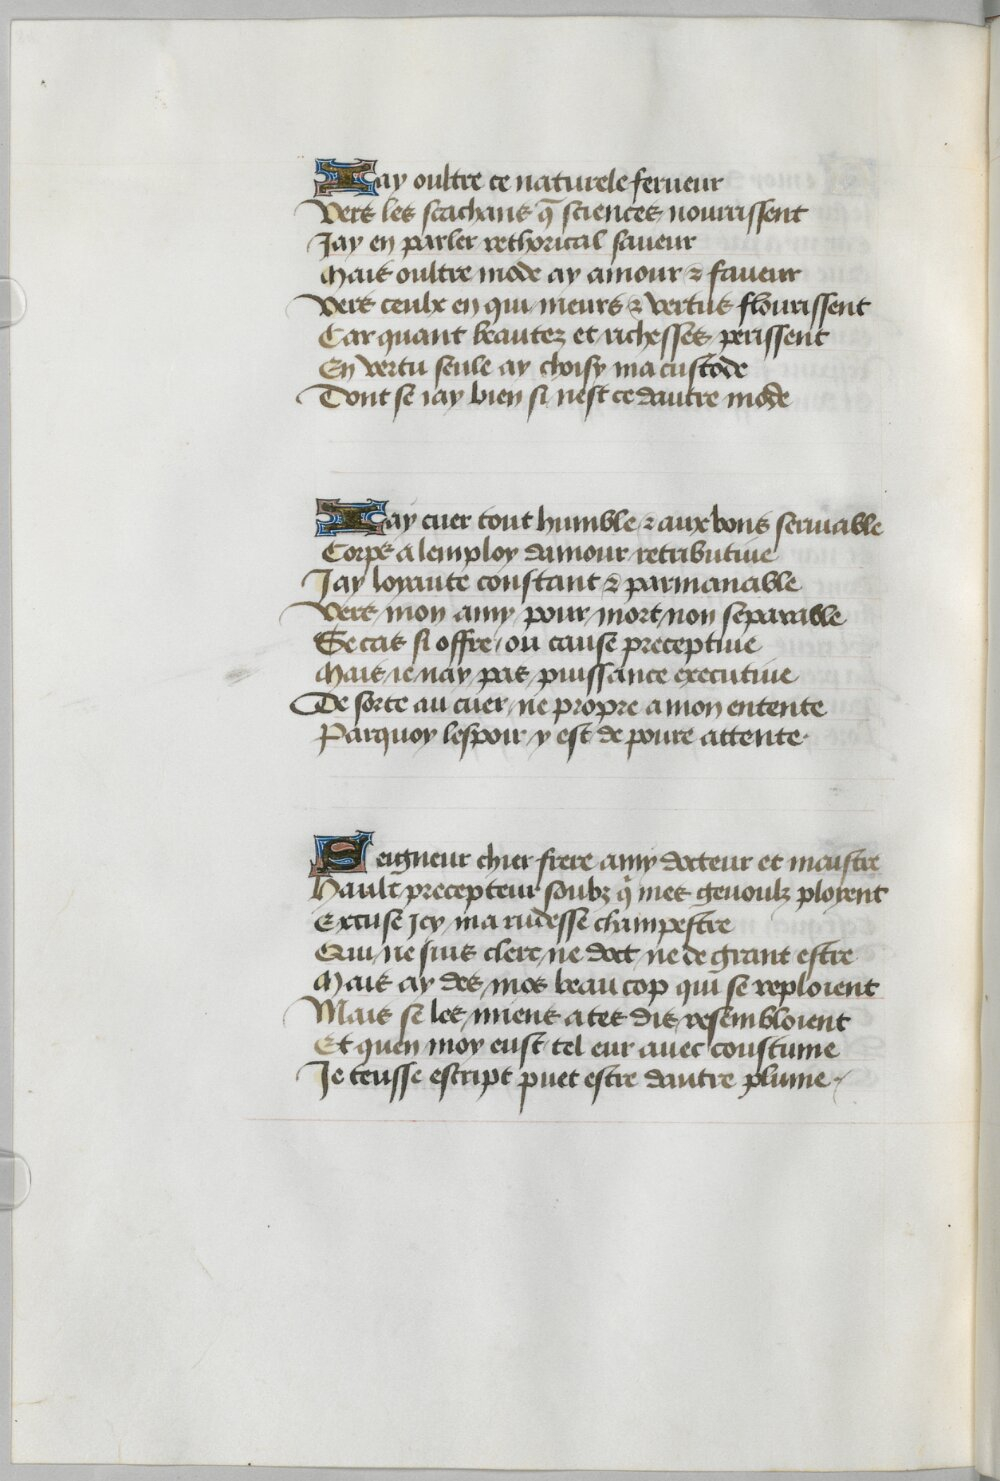 Jay oultre ce naturele ferueur
Vers les scachans q̄ sciences nourrissent
Jay en parler rethorical saueur
Mais oultre mode ay amour & faueur
Vers ceulx en qui meurs & vertus flourissent
Car quant beautez et richesses perissent
En vertu seule ay choisy ma custode
Dont se iay bien si nest ce dautre mode
Jay cuer tout humble & aux bons seruiable
Corps a lemploy damour retributiue
Jay loyaute constant & parmanable
Vers mon amy pour mort non separable
Se cas si offre ou cause preceptiue
Mais ie nay pas puissance executiue
De sorte au cuer ne propre a mon entente
Parquoy lespoir y est de poure attente
Seigneur chier frere amy docteur et maistre
Hault precepteur soubz q̄ mes genoulz ployent
Excuse jcy ma rudesse champestre
Qui ne suis clerc ne doct ne de grant estre
Mais ay des mos beaucop qui se reploient
Mais se les miens a tes dis resembloient
Et quen moy eust tel eur auec coustume
Je teusse escript puet estre dautre plume